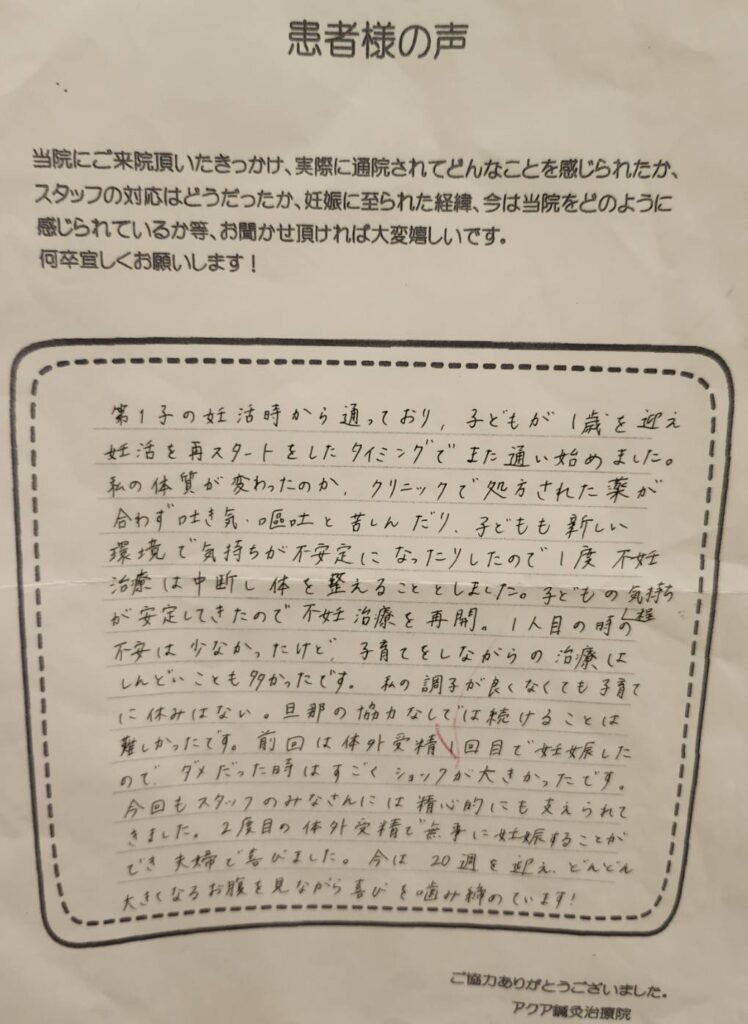 患者様の声
当院にご来院頂いたきっかけ、実際に通院されてどんなことを感じられたか、
スタッフの対応はどうだったか、妊娠に至られた経緯、今は当院をどのように
感じられているか等、お聞かせ頂ければ大変嬉しいです。
何卒宜しくお願いします！
第1子の妊活時から通っており、子どもが1歳を迎え
妊活を再スタートをしたタイミングでまた通い始めました。
私の体質が変わったのか、クリニックで処方された薬が
合わず吐き気・嘔吐と苦しんだり、子どもも新しい
環境で気持ちが不安定になったりしたので1度不妊
治療は中断し体を整えることとしました。子どもの気持ち
が安定してきたので不妊治療を再開。1人目の時の
不安は少なかったけど、子育てをしながらの治療は
しんどいことも多かったです。私の調子が良くなくても子育て
に休みはない。旦那の協力なしでは続けることは
難しかったです。前回は体外受精1回目で妊娠した
ので、ダメだった時はすごくショックが大きかったです。
今回もスタッフのみなさんには精心的にも支えられて
きました。2度目の体外受精で無事に妊娠することが
でき夫婦で喜びました。今は20週を迎え、どんどん
大きくなるお腹を見ながら喜びを噛み締めています!
ご協力ありがとうございました。
アクア鍼灸治療院